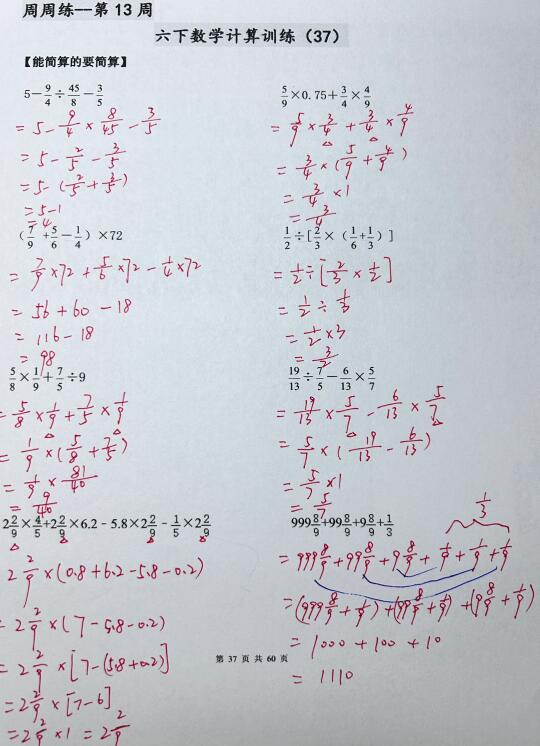 周周练--第 13 周
六下数学计算训练（37）
【能简算的要简算】
5－9/4÷45/8－3/5
= 5 - 9/4 × 8/45 - 3/5
= 5 - 2/5 - 3/5
= 5 - (2/5 + 3/5)
= 5 - 1
= 4
5/9×0.75＋3/4×4/9
= 5/9 × 3/4 + 3/4 × 4/9
= 3/4 × (5/9 + 4/9)
= 3/4 × 1
= 3/4
（7/9＋5/6－1/4）×72
= 7/9 × 72 + 5/6 × 72 - 1/4 × 72
= 56 + 60 - 18
= 116 - 18
= 98
1/2÷[2/3×（1/6＋1/3）]
= 1/2 ÷ [2/3 × 1/2]
= 1/2 ÷ 1/3
= 1/2 × 3
= 3/2
5/8×1/9＋7/5÷9
= 5/8 × 1/9 + 7/5 × 1/9
= 1/9 × (5/8 + 7/5)
= 1/9 × 81/40
= 9/40
19/13÷7/5－6/13×5/7
= 19/13 × 5/7 - 6/13 × 5/7
= 5/7 × (19/13 - 6/13)
= 5/7 × 1
= 5/7
2 2/9×4/5+2 2/9×6.2－5.8×2 2/9－1/5×2 2/9
2 2/9 × (0.8 + 6.2 - 5.8 - 0.2)
= 2 2/9 × (7 - 5.8 - 0.2)
= 2 2/9 × [7 - (5.8 + 0.2)]
= 2 2/9 × [7 - 6]
= 2 2/9 × 1 = 2 2/9
999 8/9＋99 8/9＋9 8/9＋1/3
1/3
= 999 8/9 + 99 8/9 + 9 8/9 + 1/9 + 1/9 + 1/9
= (999 8/9 + 1/9) + (99 8/9 + 1/9) + (9 8/9 + 1/9)
= 1000 + 100 + 10
= 1110
第 37 页 共 60 页